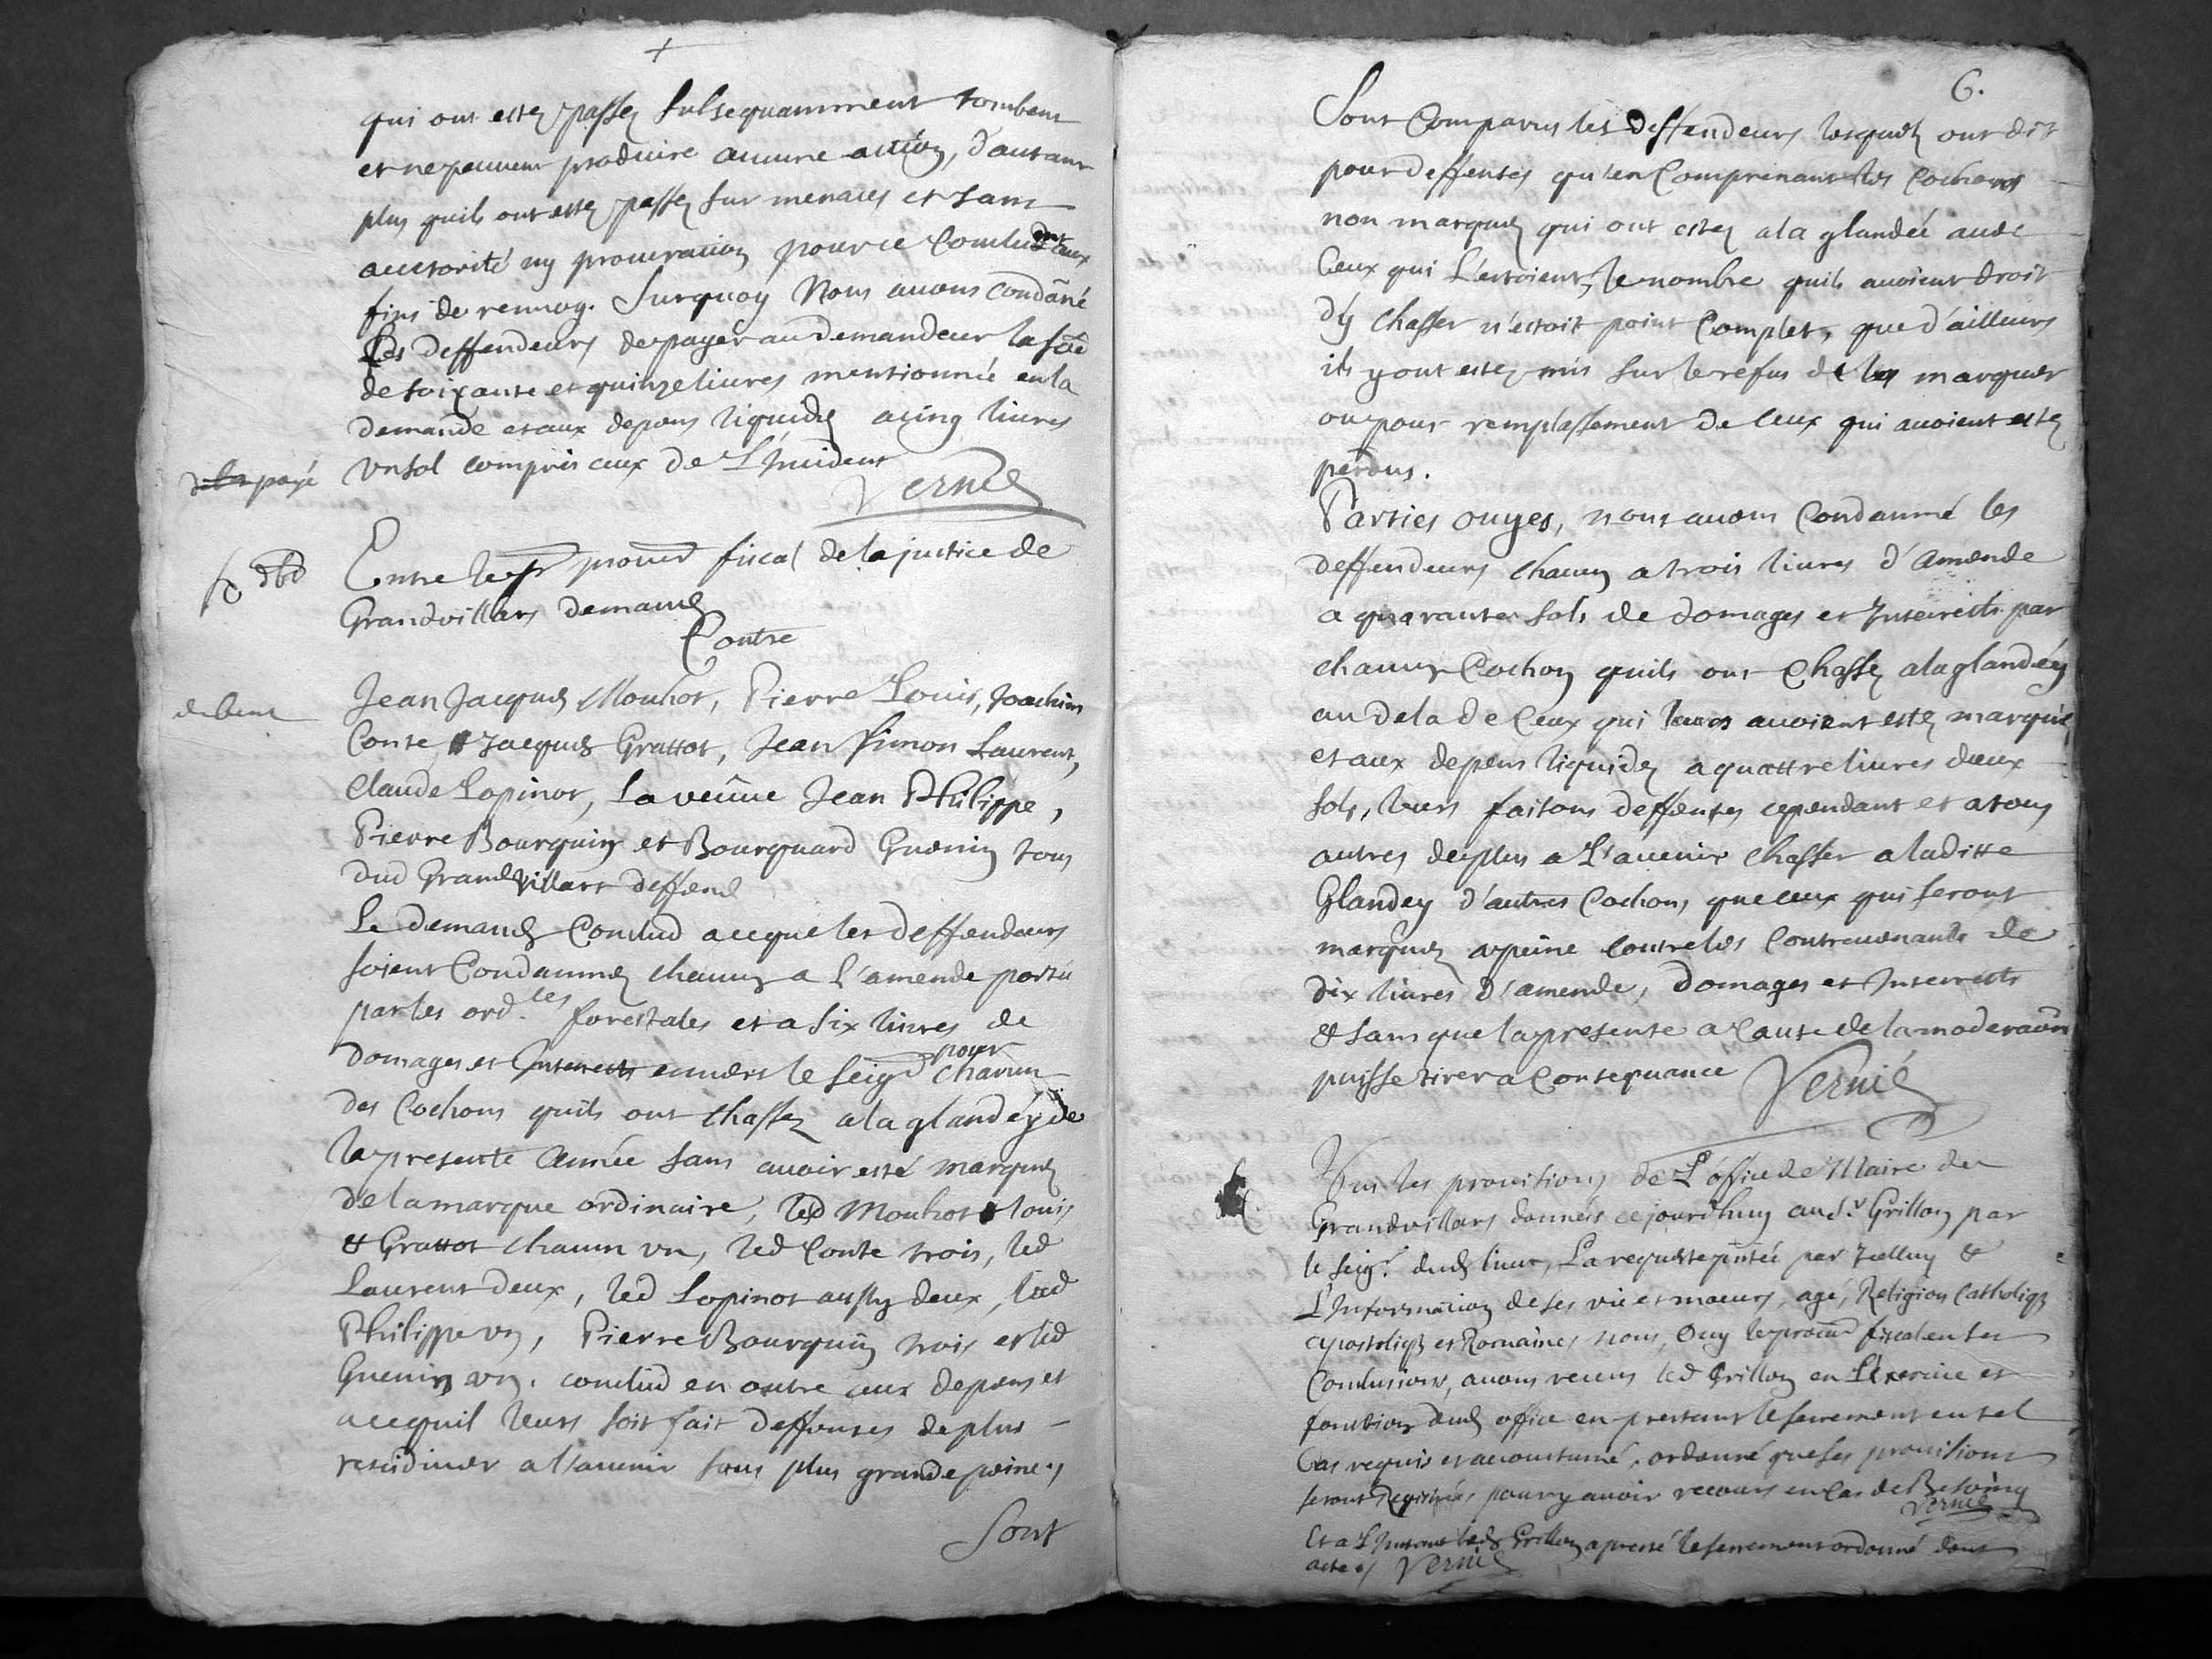 qui ont estez passez subsequamment tombent
et ne peuvent produire aucune action, d'autant
plus quils ont estez passez sur menaces et sans
auctorité ny procuration pource Concludent aux
fins de renvoy. Surquoy Nous avons condãné
les deffendeurs de payer au demandeur la sõe
de soixante et quinze livres mentionnée en la
demande et aux depens liquidés a cinq livres
un sol compris ceux de L'Incident
payé
Vernié
Entre le sr procur fiscal de la justice de
Grandvillars demandr
Contre
debent
Jean Jacques Mouhot, Pierre Louis, Joachim
Conte Jacques Grattot, Jean Simon Laurent,
Claude Lopinot, La veuve Jean Philippe,
Pierre Bourquin et Bourquard Guenin tous
dud Grandvillars deffend
Le demandr Conclud a ce que les deffendeurs
soient Condamnez chacun a l'amende portée
par les ord.ces forestales et a six livres de
domages et Interests envers le seigr pour chacun
des Cochons quils ont chassez a la glandéy de
la presente année sans avoir esté marquez
de la marque ordinaire, led Mouhot Louis
& Grattot chacun un, led Conte trois, led
Laurent deux, led Lopinot aussy deux, lad
Philippe un, Pierre Bourquin trois et led
Guenin un. conclud en outre aux depens et
a ce quil leurs soit fait deffenses de plus
recidiver a l'avenir sous plus grande peine
Sont
6.
Sont Comparus les deffendeurs lesquels ont dit
pour deffenses qu'en Comprenant les Cochons
non marquez qui ont estez a la glandée avec
Ceux qui L'estoient, le nombre quils avoient droit
d'y chasser n'estoit point Complet, que d'ailleurs
ils y ont estez mis sur le refus de les marquer
ou pour remplassement de ceux qui avoient estez
perdus.
Parties ouyes, nous avons Condamné les
deffendeurs chacun a trois livres d'amende
a quarante sols de domages et Interests par
chacun Cochon quils ont Chassez a la glandéy
au dela de Ceux qui leurs avoient estez marqués
et aux depens liquidez a quattre livres deux
sols, leurs faisons deffenses cependant et a tous
autres de plus a L'avenir chasser a laditte
Glandey d'autres Cochons que ceux qui seront
marquez a peine contre les Contrevenants de
dix livres d'amende, domages et Interrests
& sans que la presente a Cause de la moderaõn
puisse tirer a Consequance Vernié
Vus les provisions de L'office de Maire de
Grandvillars données cejourdhuy aud s.r Grillon par
le seig.r dud lieu, La requeste pntée par Icelluy &
L'Information de ses vie et moeurs, age, Religion Catholiq
apostoliq et Romaine, nous, Ouy le procur fiscal en ses
Conclusions, avons receus led Grillon en L'exercice et
fonction dud office en prestant le serrement en tel
Cas requis et accoustumé, ordonné que ses provisions
seront Registrées pour y avoir recours en cas de Besoing
Vernié
Et a L'Instant led Grillon a presté le serrement ordonné dont
acte Vernié